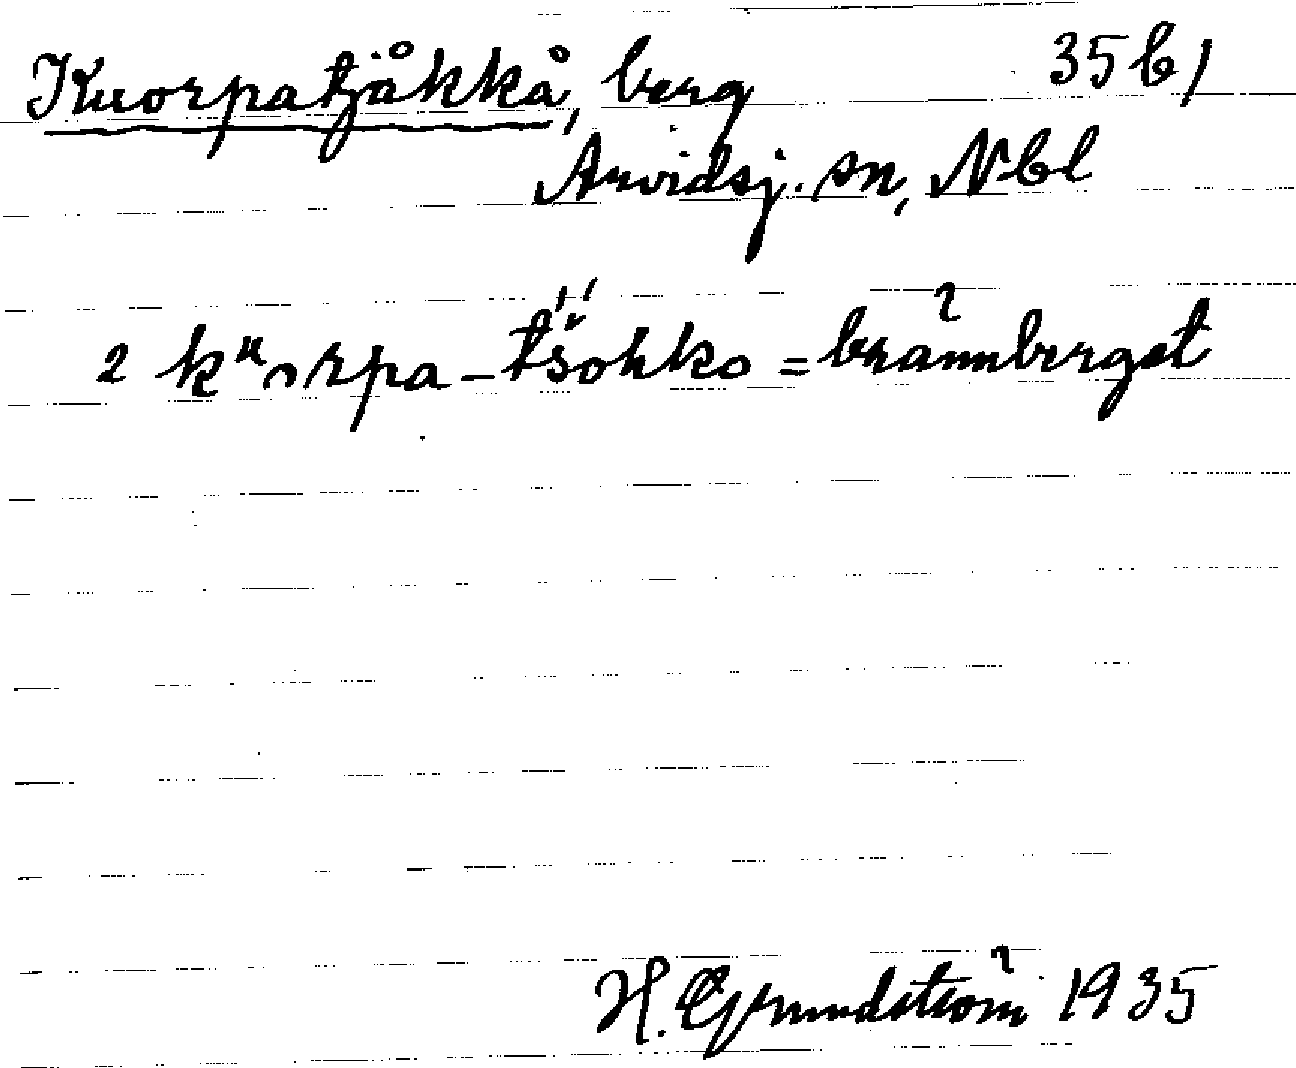 Kuorpatjåkkå, berg 35b)
Arvidsj. sn, Nbl
2 kᵘorpa-tšohko = brännberget
H. Grundström 1935